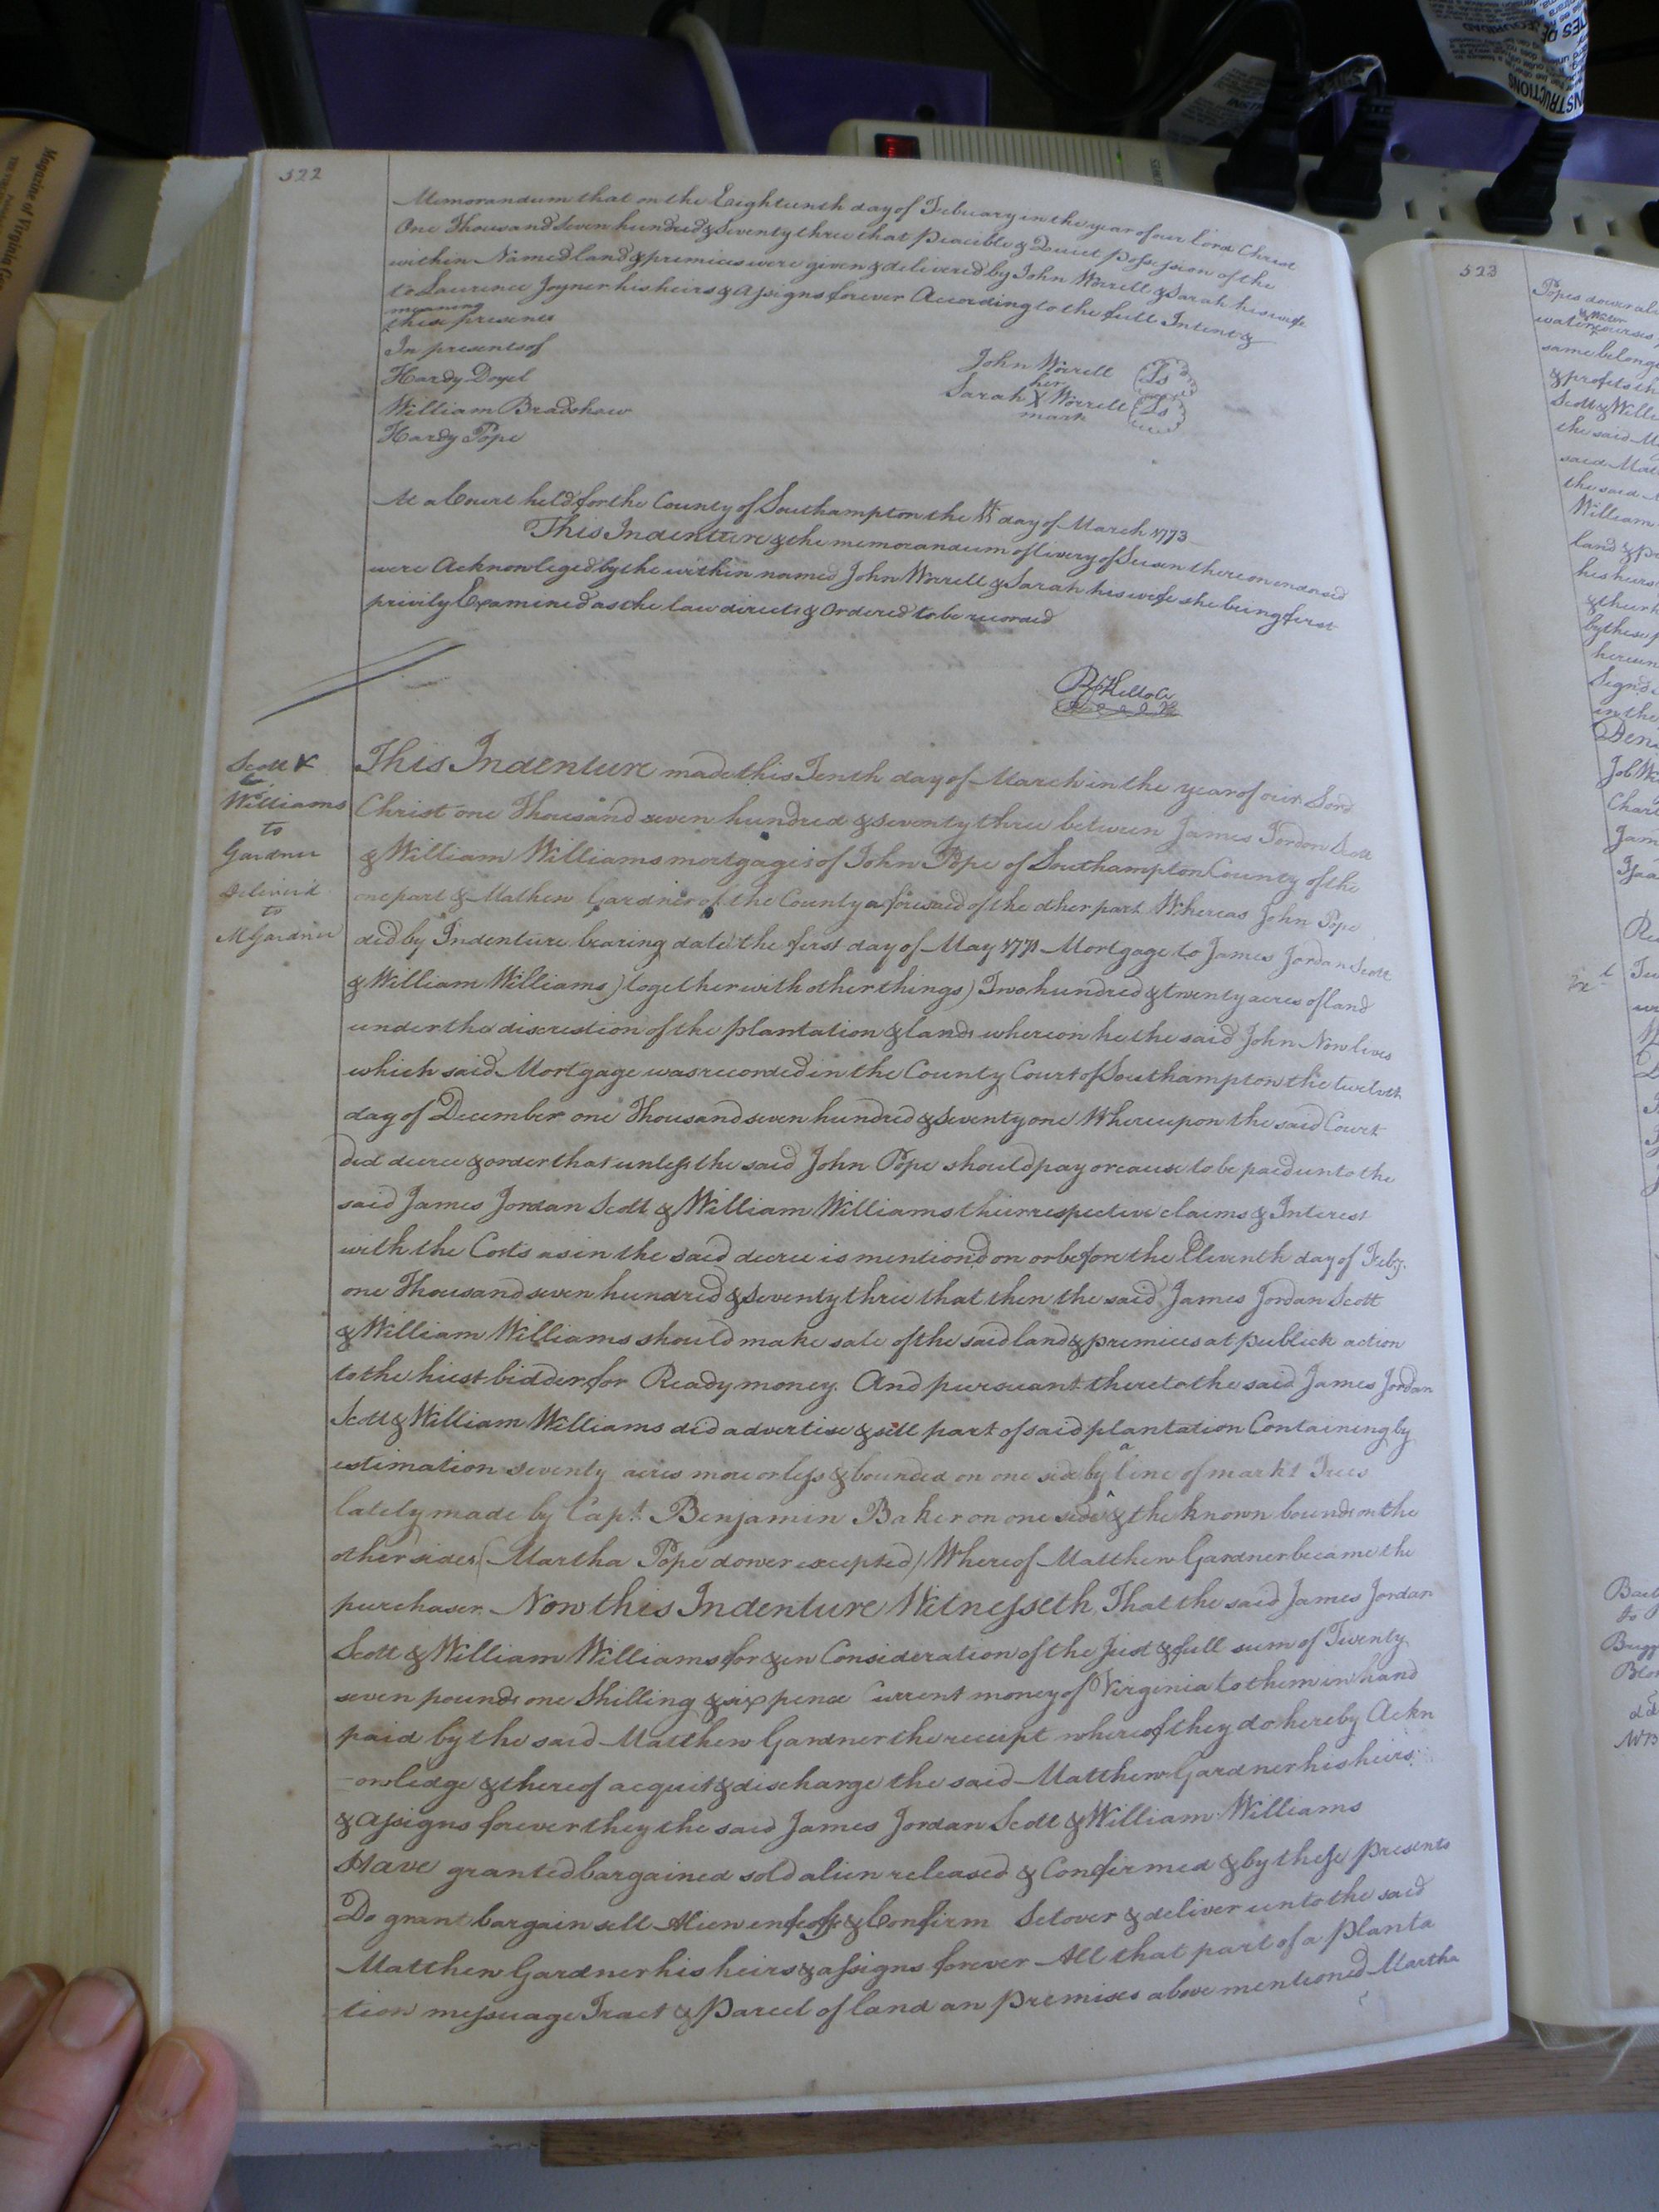 522
Memorandum that on the Eighteenth day of Febuary in the year of our Lord Christ
One Thousand Seven hundred & Seventy three that peacible & Quiet Possession of the
within Named land & premices were given & delivered by John Worrell & Sarah his wife
to Laurence Joyner his heirs & Assigns forever According to the full Intent &
meaning
these presents
In presents of
Hardy Doyel
William Bradshaw
Hardy Pope
John Worrell Ls
her
Sarah X Worrell Ls
mark
At a Court held for the County of Southampton the 11 day of March 1773
This Indenture & the memorandum of livery of Seisen thereon endorsed
were Acknowleged by the within named John Worrell & Sarah his wife she being first
privily Examined as the law directs & Ordered to be recorded
Scott &
Williams
to
Gardner
Deliver'd
to
M Gardner
This Indenture made this Tenth day of March in the year of our Lord
Christ one Thousand seven hundred & seventy three between James Jordon Scott
& William Williams mortgages of John Pope of Southampton County of the
one part & Mathew Gardner of the County aforesaid of the other part Whereas John Pope
did by Indenture bearing date the first day of May 1771 Mortgage to James Jordan Scott
& William Williams) together with other things) Two hundred & twenty acres of land
under the discrestion of the plantation & lands whereon he the said John Now lives
which said Mortgage was recorded in the County Court of Southampton the twelvth
day of December one Thousand seven hundred & Seventy one Whereupon the said Court
did decree & order that unless the said John Pope should pay or cause to be paid unto the
said James Jordan Scott & William Williams their respective claims & Interest
with the Costs as in the said decree is mention'd on or before the Eleventh day of Feby.
one Thousand seven hundred & Seventy three that then the said James Jordan Scott
& William Williams should make sale of the said land & premices at publick action
to the hiest bidder for Ready money. And pursuant thereto the said James Jordan
Scott & William Williams did advertise & sell part of said plantation Containing by
estimation seventy acres more or less & bounded on one side by a line of markt Trees
lately made by Capt. Benjamin Baker on one side & the known bounds on the
other sides (Martha Pope dower excepted) Whereof Matthew Gardner became the
purchaser. Now this Indenture Witnesseth, That the said James Jordan
Scott & William Williams for & in Consideration of the Just & full sum of Twenty
seven pounds one Shilling & six pence Current money of Virginia to them in hand
paid by the said Matthew Gardner the receipt whereof they do hereby Ackn
-owledge & thereof acquit & discharge the said Matthew Gardner his heirs
& Assigns forever they the said James Jordan Scott & William Williams
Have granted bargained sold alien released & Confirmed & by these presents
Do grant bargain sell Alien enfeoff & Confirm Set over & deliver unto the said
Matthew Gardner his heirs & assigns forever All that part of a Planta
-tion messuage Tract & Parcel of land an Premises above mentioned Martha
523
Popes dower
& Water
same belong
& profits th
Scott & Willi
the said M
said Mat
the said
William
land & p
his heirs
by these p
hereun
Sign'd
in the
Job W
Charl
Jam
Magazine of Virginia
INSTRUCTIONS